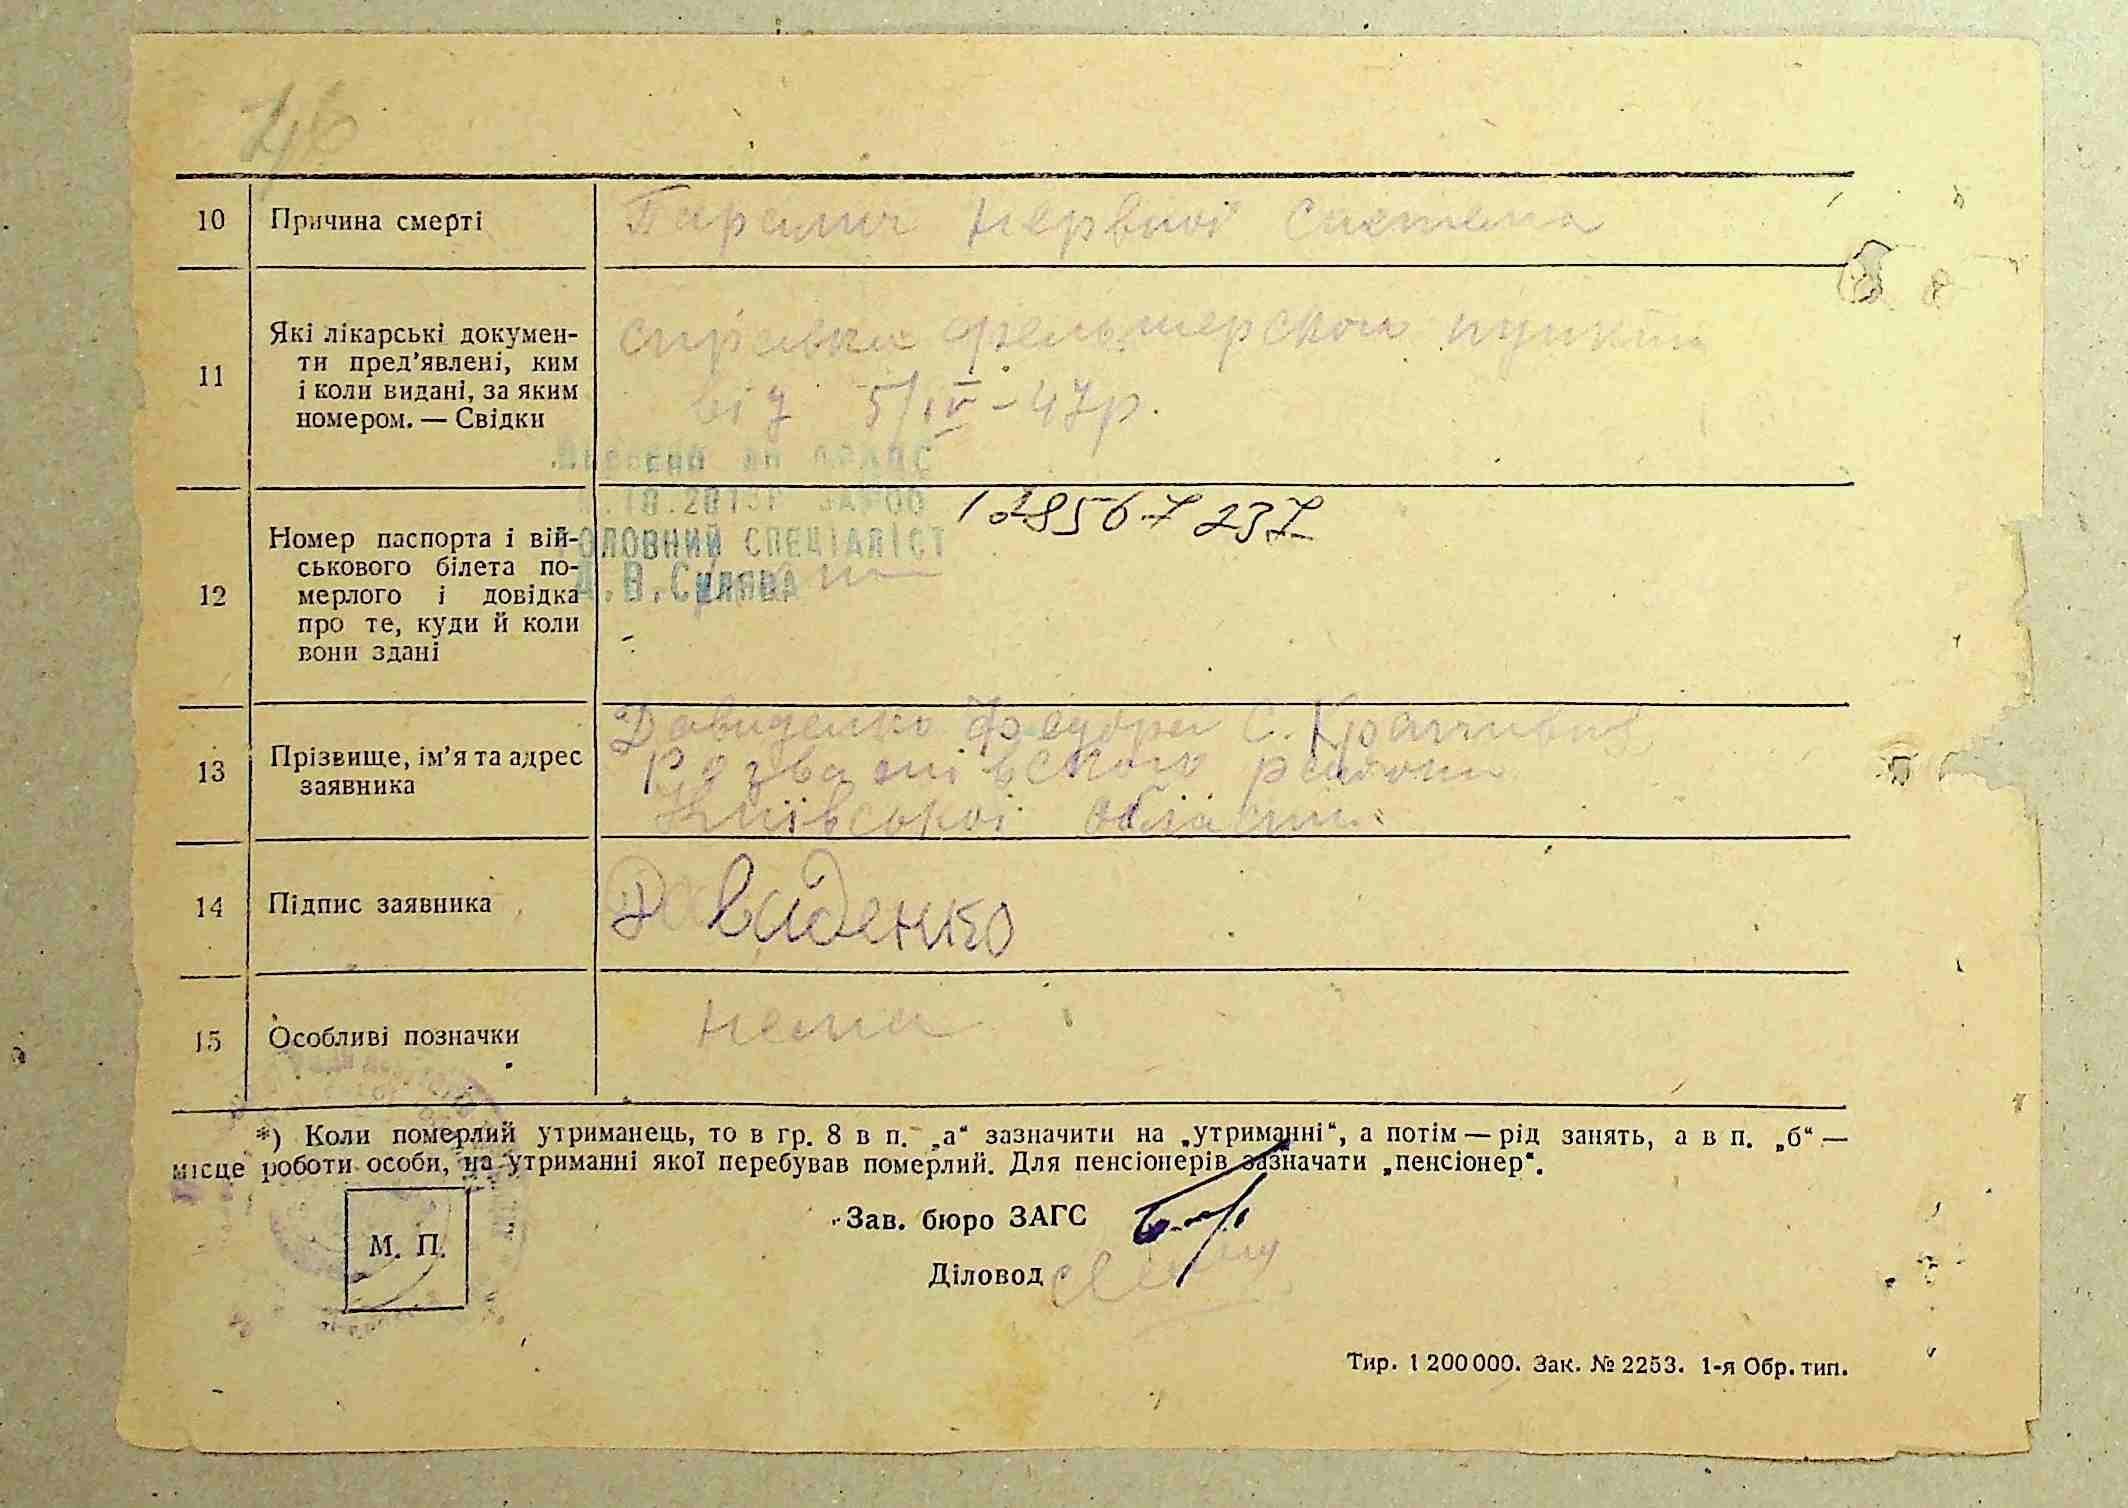 10 Причина смерті Параліч нервної система
11 Які лікарські докумен-
ти пред'явлені, ким
і коли видані, за яким
номером. — Свідки
справка фельшерского пункта
від 5/IV - 47р.
ГОЛОВНИЙ СПЕЦІАЛІСТ
128567237
12 Номер паспорта і вій-
ськового білета по-
мерлого і довідка
про те, куди й коли
вони здані
13 Прізвище, ім'я та адрес
заявника
Давиденко Федора С.
Розважівського района
Київської области
14 Підпис заявника Давиденко
15 Особливі позначки нема
*) Коли померлий утриманець, то в гр. 8 в п. „а“ зазначити на „утриманні“, а потім — рід занять, а в п. „б“ —
місце роботи особи, на утриманні якої перебував померлий. Для пенсіонерів зазначати „пенсіонер“.
М. П.
Зав. бюро ЗАГС
Діловод
Тир. 1 200 000. Зак. № 2253. 1-я Обр. тип.